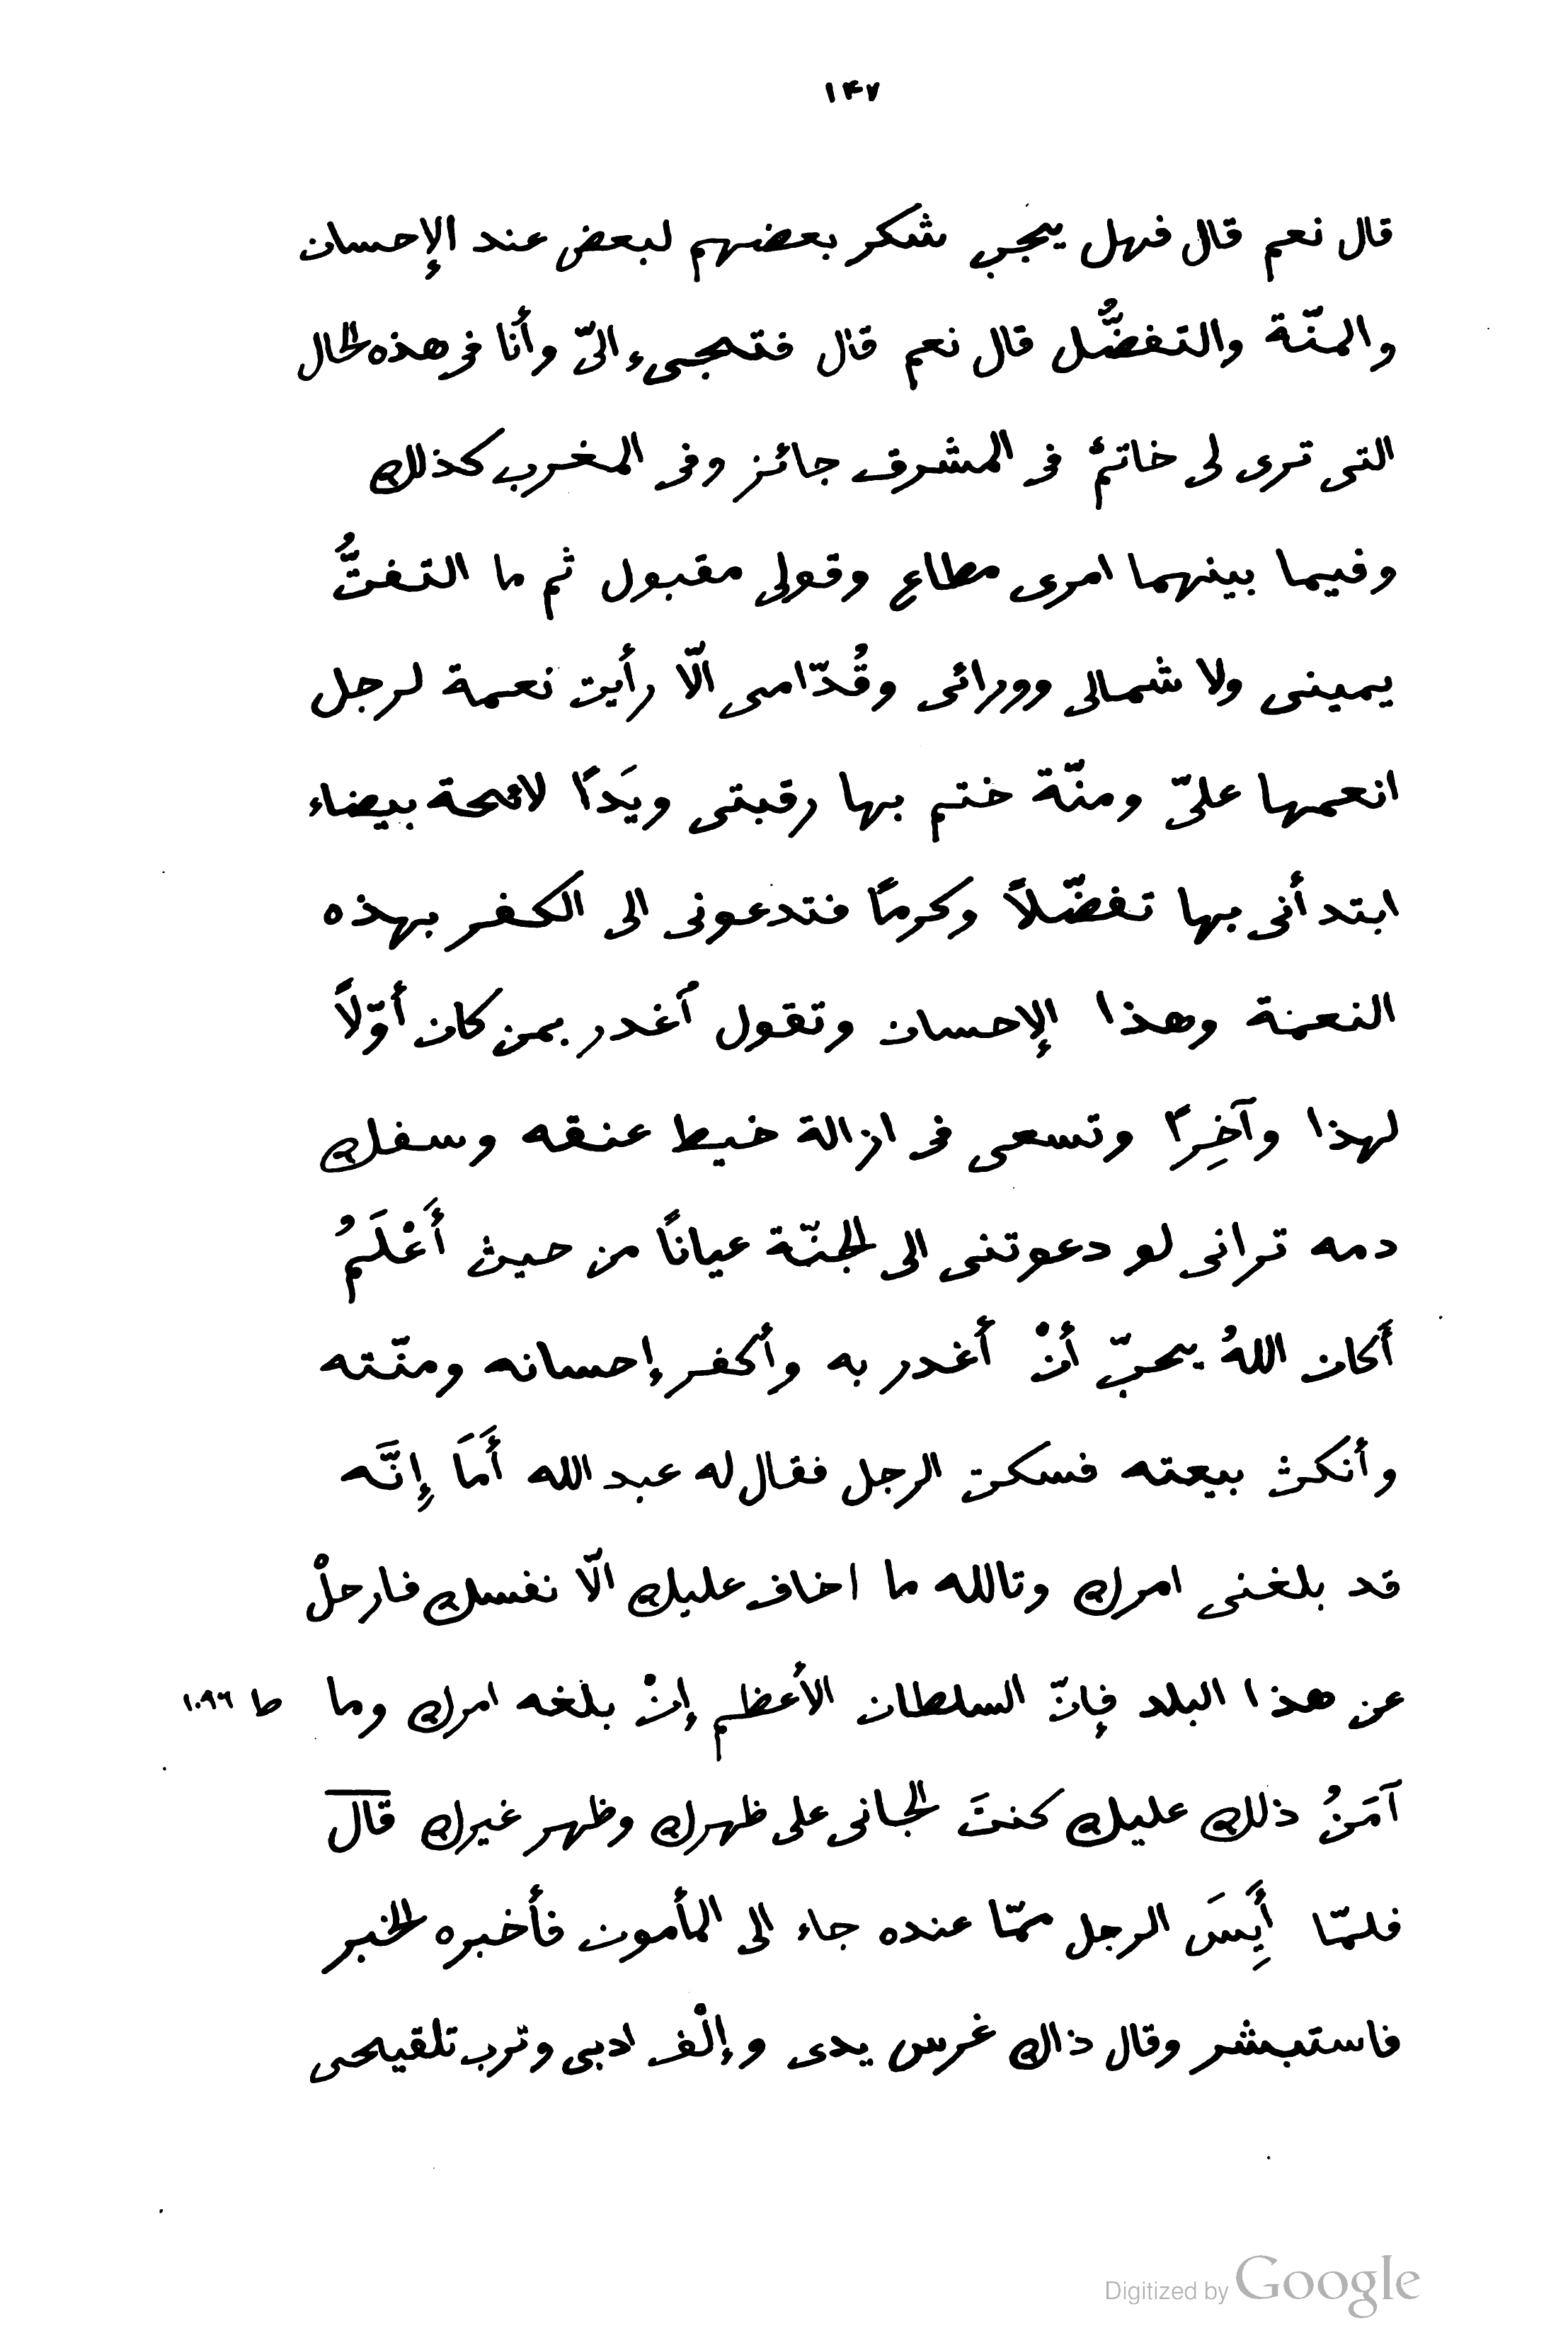 ١٤٧
قال نعم قال فهل يجب شكر بعضهم لبعض عند الإحسان
والمنّة والتفضُّل قال نعم قال فتجىء الىّ وأنا فى هذه الحال
التى ترى لى خاتمٌ فى المشرق جائز وفى المغرب كذلك
وفيما بينهما امرى مطاع وقولى مقبول ثم ما التفتُّ
يمينى ولا شمالى وورائى وقُدّامى الّا رأيت نعمة لرجل
انعمها علىّ ومنّة ختم بها رقبتى ويَدًا لائحة بيضاء
ابتدأنى بها تفضّلاً وكرمًا فتدعونى الى الكفر بهذه
النعمة وهذا الإحسان وتقول أغدر بمن كان أوّلاً
لهذا وآخِرًا وتسعى فى ازالة خيط عنقه وسفك
دمه ترانى لو دعوتنى الى الجنّة عيانًا من حيث أَعْلَمُ
أكان اللهُ يحبّ أنْ أغدر به وأكفر إحسانه ومنّته
وأنكث بيعته فسكت الرجل فقال له عبد الله أَمَا إِنَّه
قد بلغنى امرك وتالله ما اخاف عليك الّا نفسك فارحلْ
عن هذا البلد فإنّ السلطان الأعظم إنْ بلغه امرك وما ط ١٠٩٦
آمَنُ ذلك عليك كنتَ الجانى على ظهرك وظهر غيرك قال
فلمّا أَيِسَ الرجل ممّا عنده جاء الى المأمون فأخبره الخبر
فاستبشر وقال ذاك غرس يدى وإلْف ادبى وترب تلقيحى
Digitized by Google